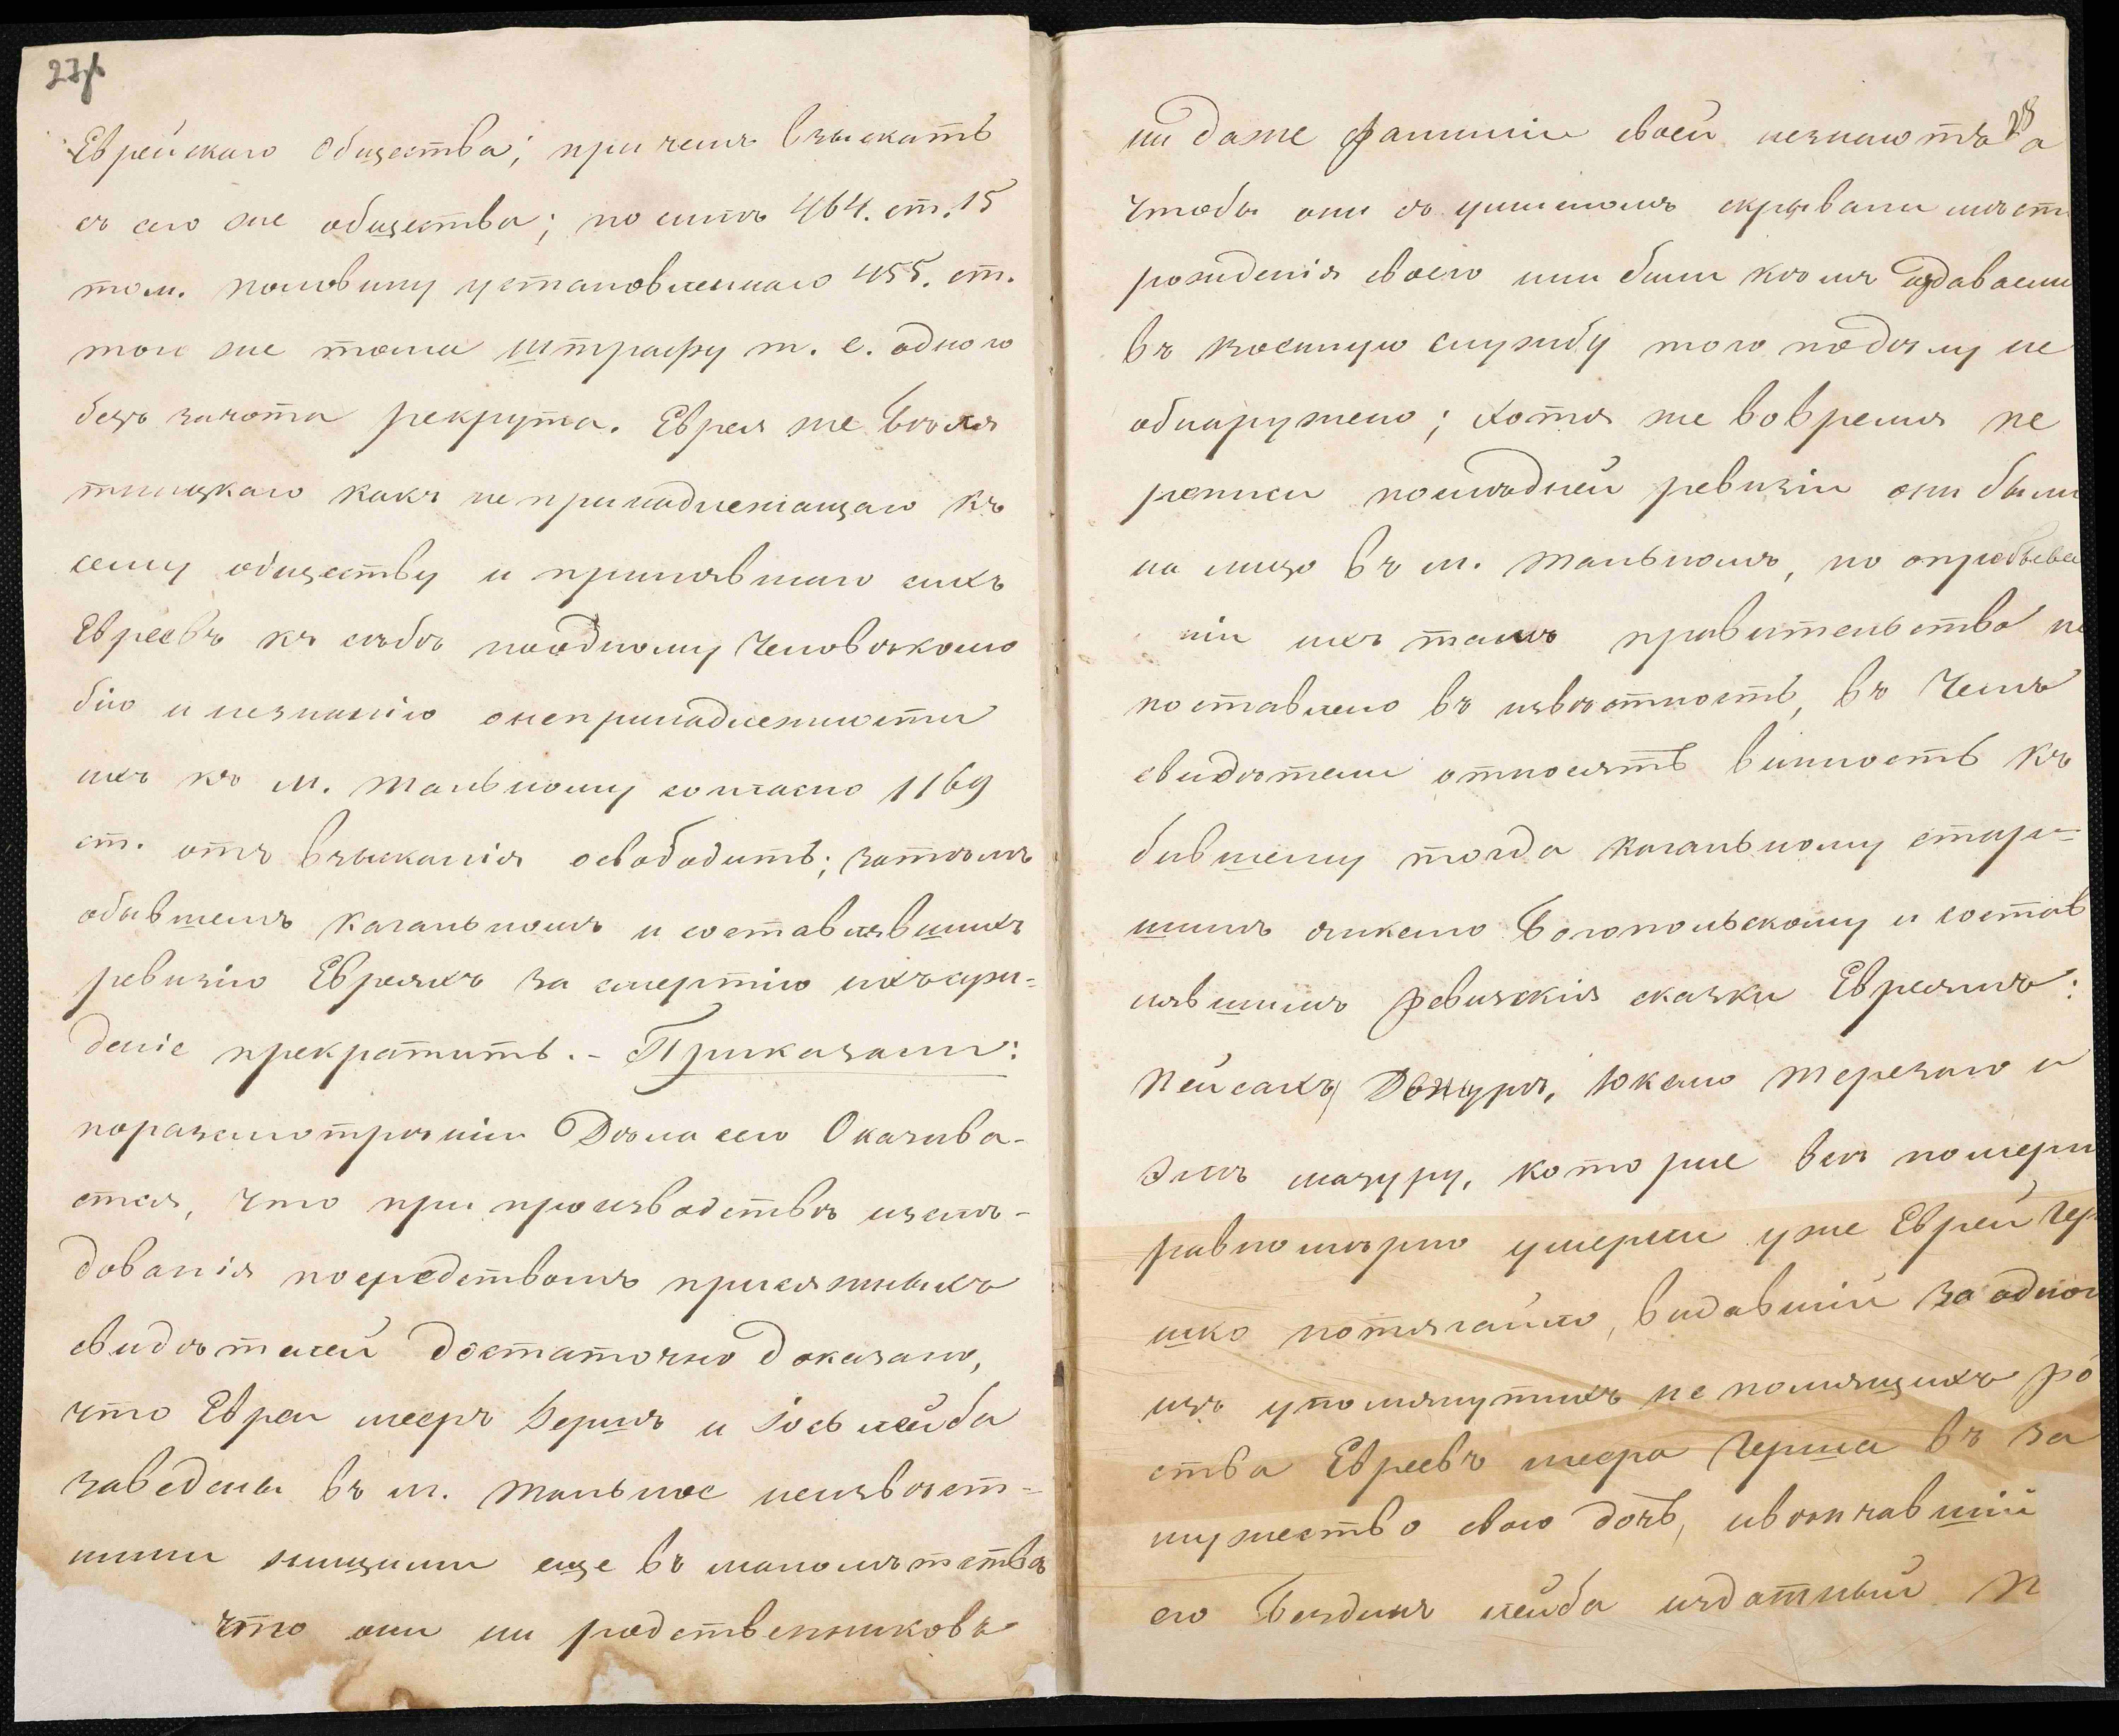 27
Еврейскаго общества; при чемъ взыскать
съ его же общества; по силѣ 464. ст. 15
том. половину установленнаго 455. ст.
того же тома штрафу т. е. одного
безъ зачота рекрута. Еврея же
какъ не принадлежащаго къ
сему обществу и принявшаго сихъ
Евреевъ къ себѣ поодному человѣколю
бію и незнанію онепринадлежности
ихъ къ м. Тальному согласно 1169
ст. отъ взысканія освободить; затѣмъ
обывшемъ кагальномъ и составлявшихъ
ревизію Евреяхъ за смертію ихъ сужи-
деніе прекратить. - Приказали:
поразсмотрѣніи Дѣла сего Оказива-
ется, что при производствѣ изслѣ-
дованія посредствомъ присяжныхъ
свидѣтелей достаточно доказано,
что Евреи мееръ Гершъ и Іось лейба
заведены въ м. Тальное неизвѣст-
ными нищими еще въ малолѣтствѣ
что они ни родственниковъ
28
ни даже фамиліи своей незнаютъ а
чтобы они съ умысломъ скрывали мѣсто
рожденія своего или были кѣмъ отдаваеми
въ военную службу того подѣлу не
обнаружено; хотя же вовремя пе
реписи послѣдней ревизіи они были
на лицо въ м. Тальномъ, но
ніи ихъ тамъ правительства не
поставлено въ извѣстность, въ чемъ
свидѣтели относятъ винность къ
бывшему тогда кагальному стар-
шинѣ Янкелю Богопольскому и состав
лявшимъ ревизскія сказки Евреямъ:
Пейсаху Юкелю Терезаго и
мазуру, которые всѣ померли
равномѣрно умерли уже Еврей Гер
шко потягайло, видавшій за одного
изъ упомянутихъ не помнящихъ ро
ства Евреевъ меера Герша въ за
мужество свою дочь, ивѣнчавшій
его лейба издатный П